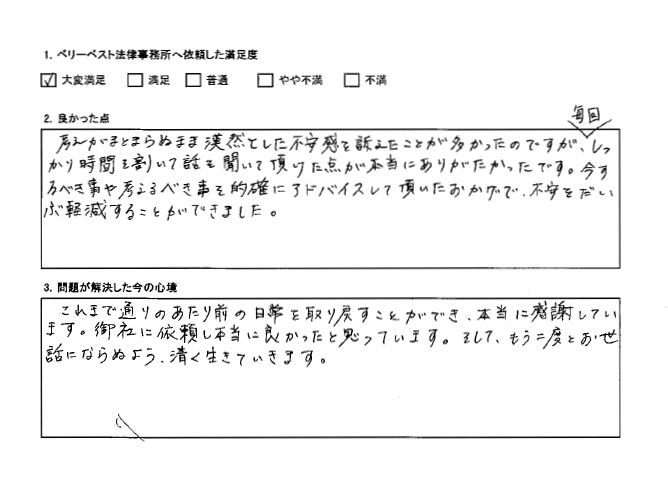 1. ベリーベスト法律事務所へ依頼した満足度
☑ 大変満足 □ 満足 □ 普通 □ やや不満 □ 不満
2. 良かった点
毎回
考えがまとまらぬまま漠然とした不安感を訴えたことが多かったのですが、しっ
かり時間を割いて話を聞いて頂けた点が本当にありがたかったです。今す
るべき事や考えるべき事を的確にアドバイスして頂いたおかげで、不安をだい
ぶ軽減することができました。
3. 問題が解決した今の心境
これまで通りのあたり前の日常を取り戻すことができ、本当に感謝してい
ます。御社に依頼し本当に良かったと思っています。そして、もう二度とお世
話にならぬよう、清く生きていきます。